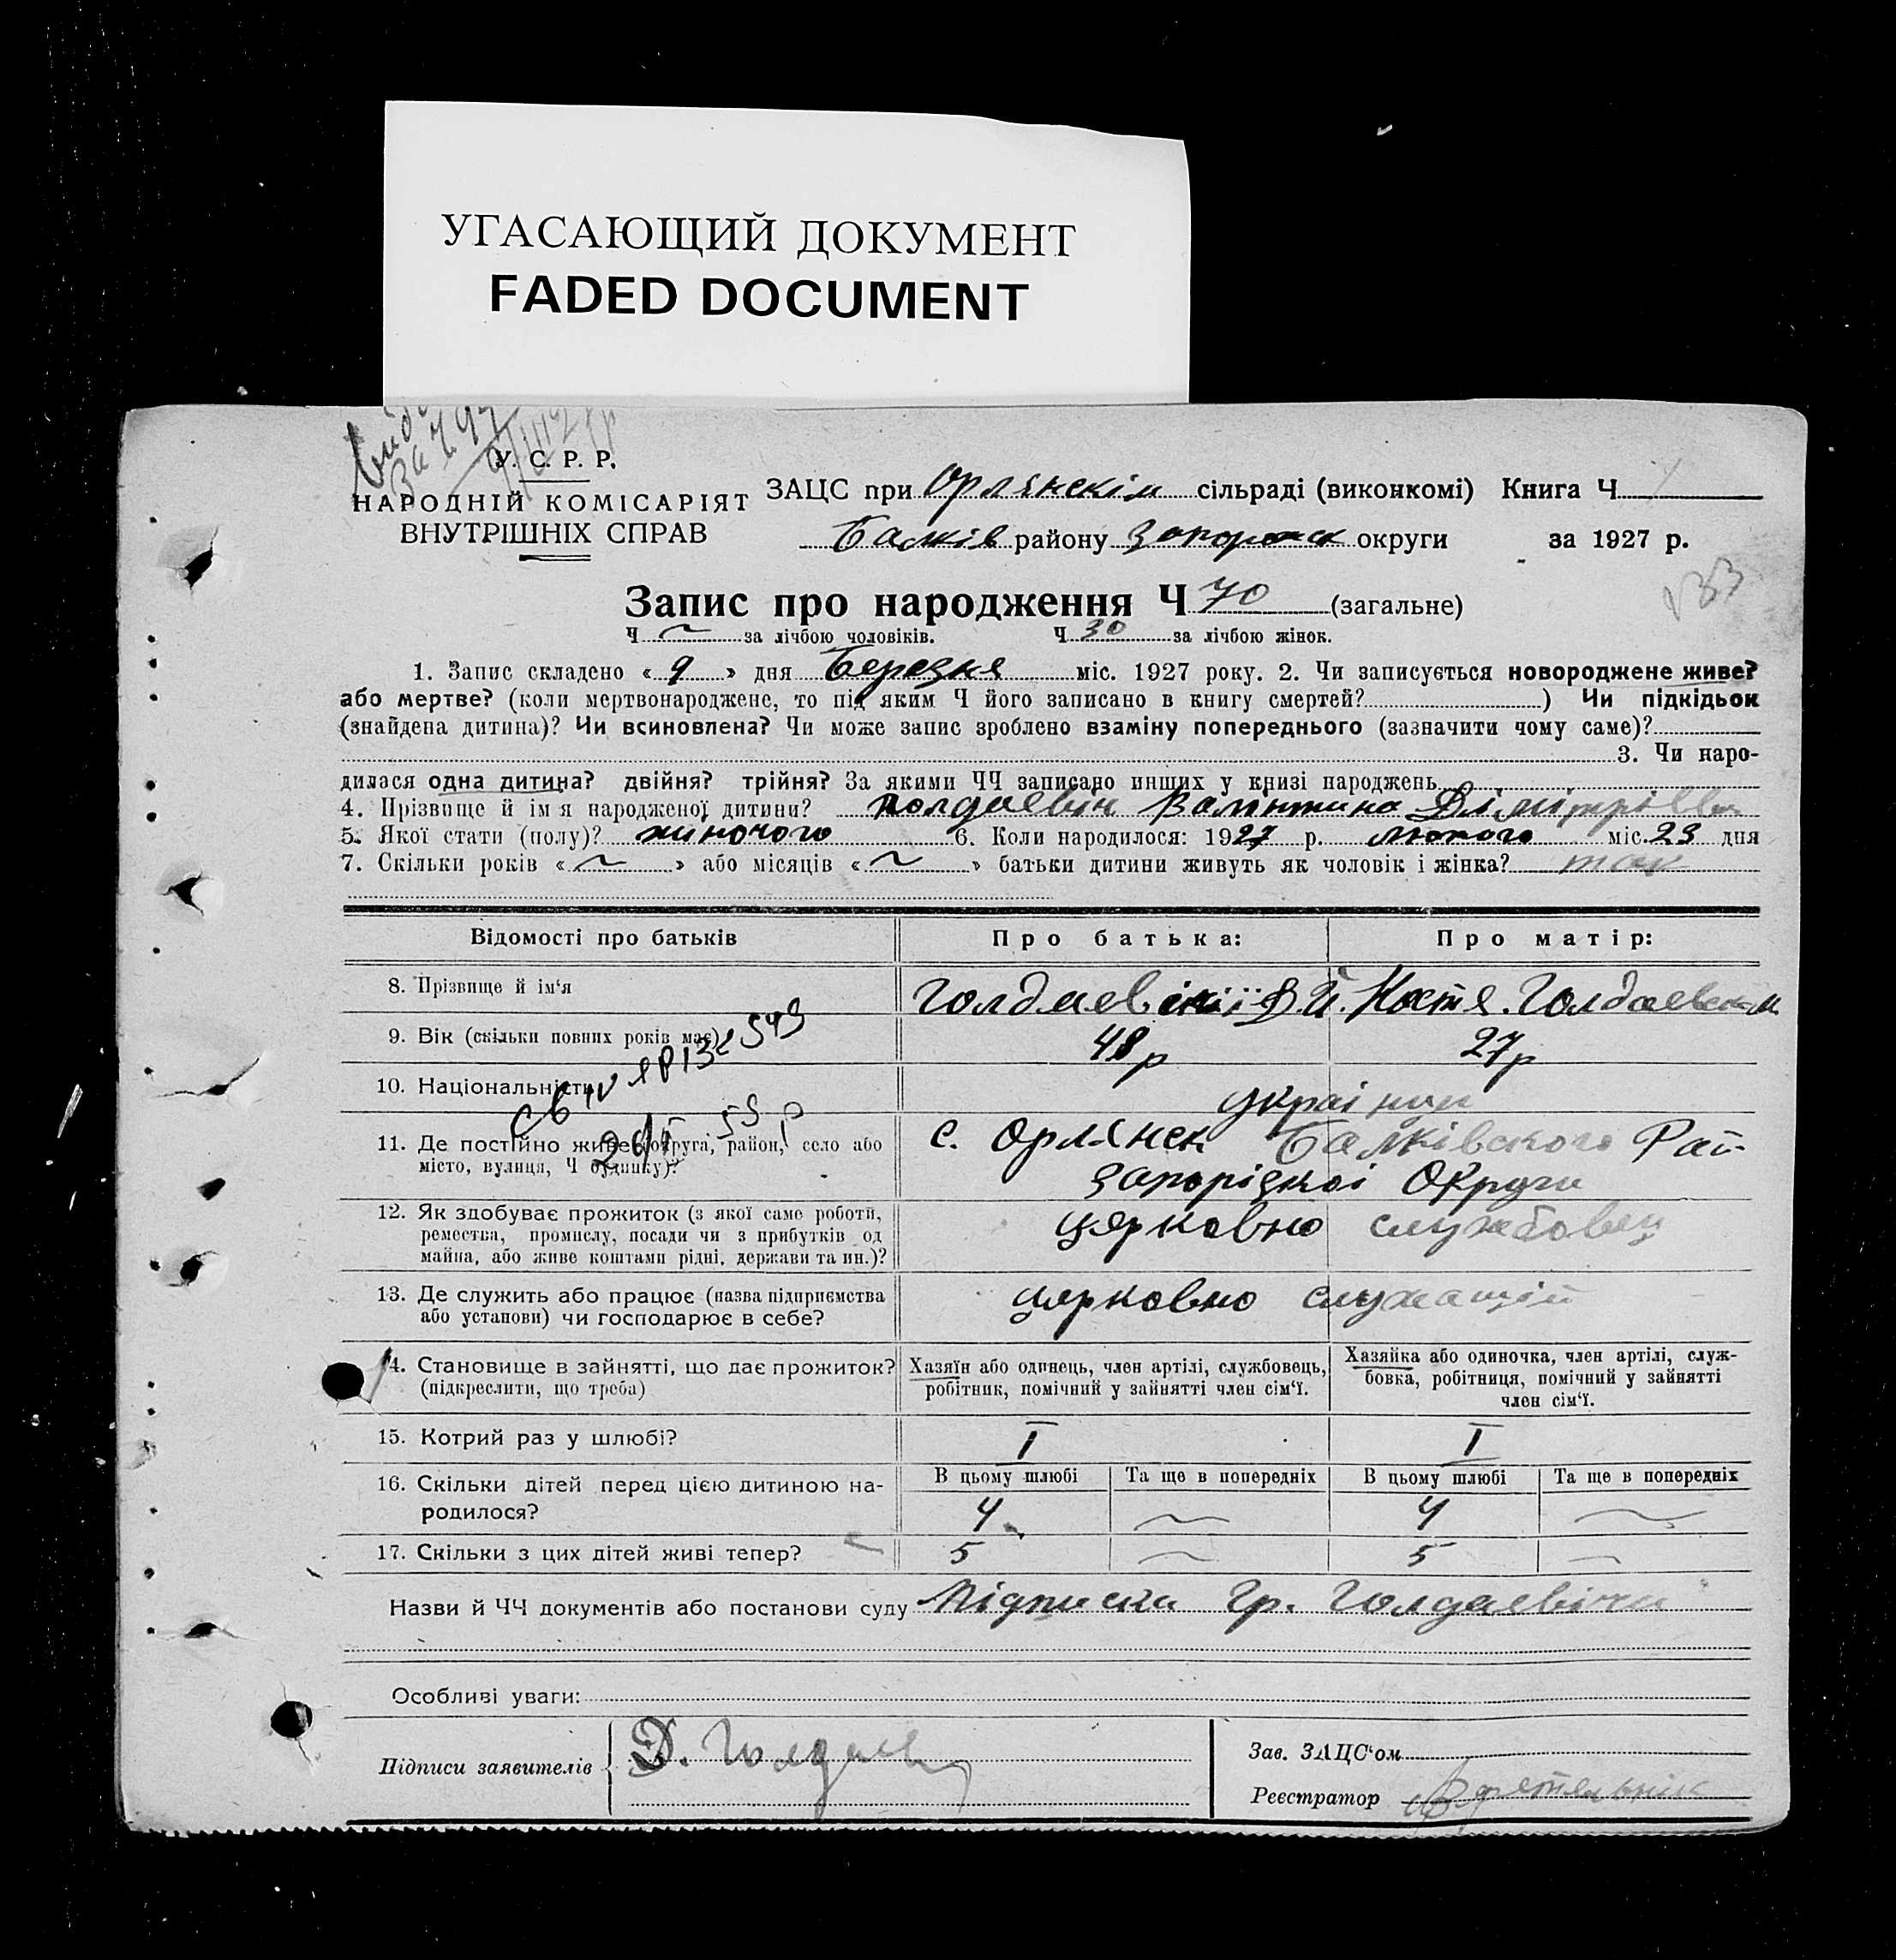 УГАСАЮЩИЙ ДОКУМЕНТ
FADED DOCUMENT
У. С. Р. Р.
НАРОДНІЙ КОМІСАРІЯТ
ВНУТРІШНІХ СПРАВ
ЗАЦС при Орлянскім сільраді (виконкомі) Книга Ч
Балків району Запорожск округи за 1927 р.
Запис про народження Ч 70 (загальне)
Ч ~ за лічбою чоловіків. Ч 30 за лічбою жінок.
1. Запис складено « 9 » дня Березня міс. 1927 року. 2. Чи записується новороджене живе?
або мертве? (коли мертвонароджене, то під яким Ч його записано в книгу смертей? ) Чи підкідьок
(знайдена дитина)? Чи всиновлена? Чи може запис зроблено взаміну попереднього (зазначити чому саме)?
3. Чи наро-
дилася одна дитина? двійня? трійня? За якими ЧЧ записано инших у книзі народжень
4. Прізвище й ім'я народженої дитини? Голдаевіч Валентина Дімітріевна
5. Якої стати (полу)? жиночого 6. Коли народилося: 1927 р. лютого міс. 23 дня
7. Скільки років « ~ » або місяців « ~ » батьки дитини живуть як чоловік і жінка? так
Відомості про батьків Про батька: Про матір:
8. Прізвище й ім'я Голдаевскії Д. Й. Костя. Голдаевск
9. Вік (скільки повних років має) 48 р 27 р
10. Національність украінци
11. Де постійно живе (округа, район, село або
місто, вулиця, Ч будинку)?
с. Орлянск Балківского Рай
Запорізкоі Округи
12. Як здобуває прожиток (з якої саме роботи,
ремества, промислу, посади чи з прибутків од
майна, або живе коштами рідні, держави та ин.)?
церковно службовец
13. Де служить або працює (назва підприємства
або установи) чи господарює в себе?
церковно служащій
14. Становище в зайнятті, що дає прожиток?
(підкреслити, що треба)
Хазяїн або одинець, член артілі, службовець,
робітник, помічний у зайнятті член сім'ї.
Хазяйка або одиночка, член артілі, служ-
бовка, робітниця, помічний у зайнятті
член сім'ї.
15. Котрий раз у шлюбі? I I
16. Скільки дітей перед цією дитиною на-
родилося?
В цьому шлюбі Та ще в попередніх В цьому шлюбі Та ще в попередніх
4 ~ 4 ~
17. Скільки з цих дітей живі тепер? 5 ~ 5 ~
Назви й ЧЧ документів або постанови суду Підписка Гр. Голдаевіча
Особливі уваги:
Підписи заявителів Д. Голдаев
Зав. ЗАЦС'ом
Реєстратор